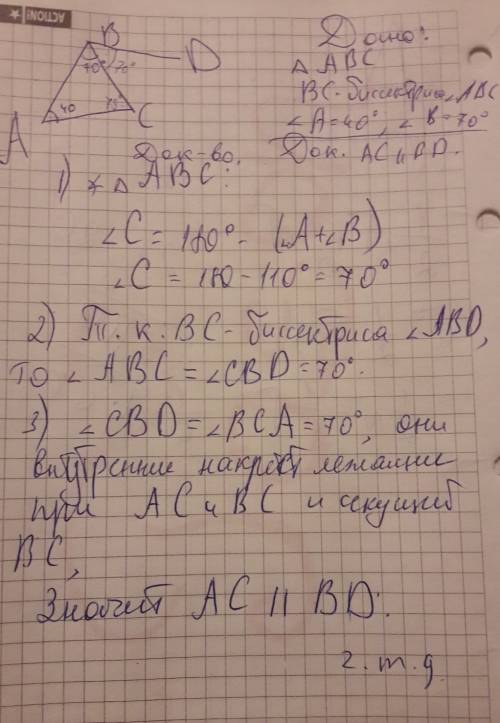 ACTION!
B
D
70° 70°
40
70
C
A
Дано:
△ ABC
BC - биссектриса ∠ABC
∠A = 40°, ∠B = 70°
Док. AC ∥ BD.
Док-во.
1) △ ABC:
∠C = 180° - (∠A+∠B)
∠C = 180 - 110° = 70°
2) Т. к. BC - биссектриса ∠ABD,
то ∠ABC = ∠CBD = 70°.
3) ∠CBD = ∠BCA = 70°, они
внутренние накрест лежащие
при AC и BC и секущей
BC,
Значит AC ∥ BD.
ч. т. д.